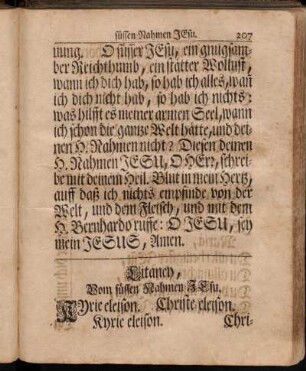 süssen Nahmen JEsu. 207
nung. O süsser JEsu, ein gnugsam-
ber Reichthumb, ein statter Wollust,
wann ich dich hab, so hab ich alles, wañ
ich dich nicht hab, so hab ich nichts:
was hilfft es meiner armen Seel, wann
ich schon die gantze Welt hätte, und dei-
nen H. Nahmen nicht? Diesen deinen
H. Nahmen JESU, O HErr, schrei-
be mit deinem Heil. Blut in mein Hertz,
auff daß ich nichts empfinde von der
Welt, und dem Fleisch, und mit dem
H. Bernhardo ruffe: O JESU, sey
mein JESUS, Amen.
Litaney,
Vom süssen Nahmen JEsu.
KYrie eleison. Christe eleison.
Kyrie eleison. Chri-